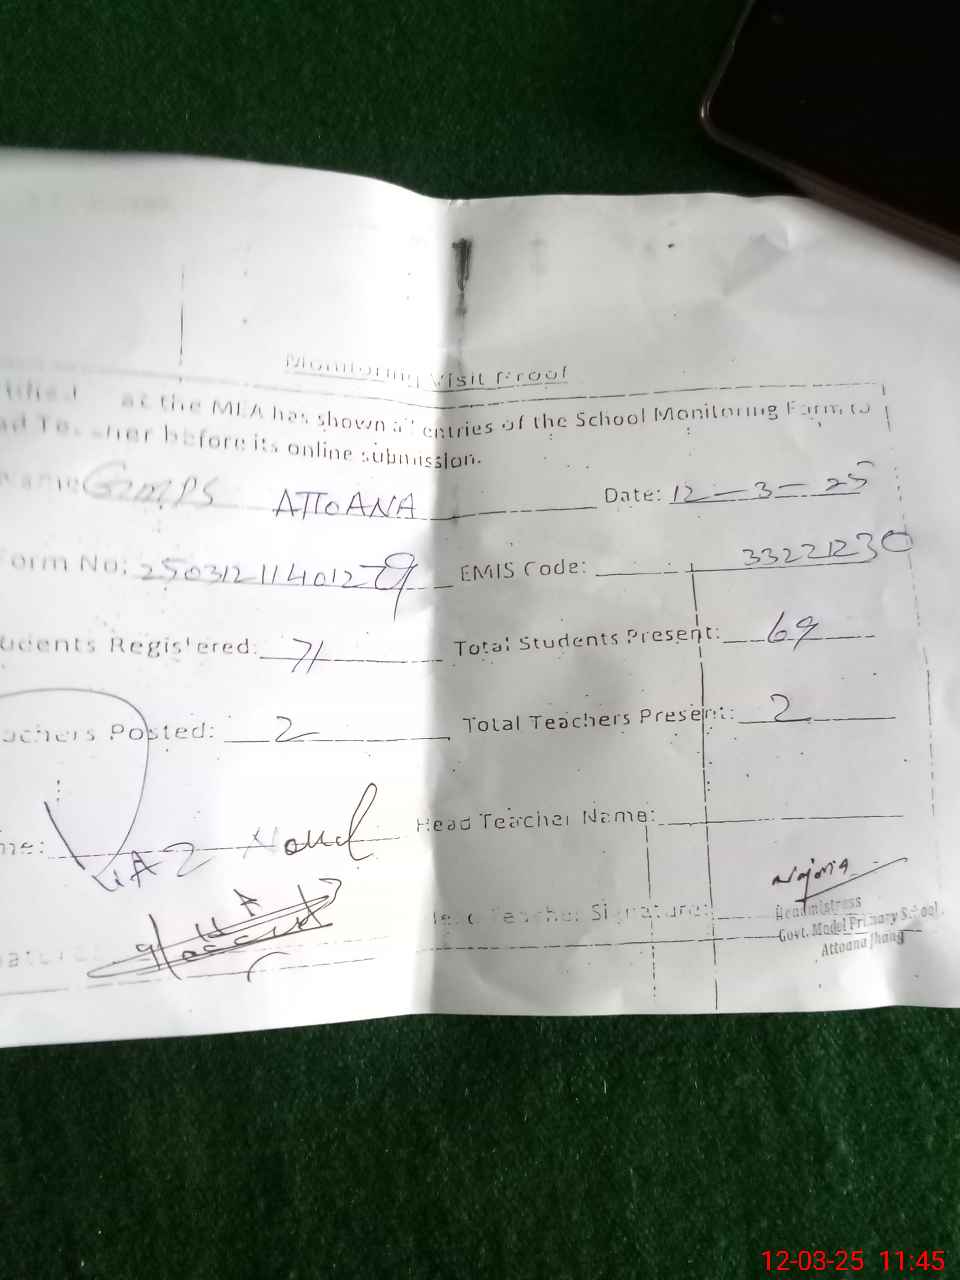 Monitoring Visit Proof
at the MEA has shown all entries of the School Monitoring Form to
before its online submission.
Name: GMPS ATTOANA Date: 12-3-25
Form No: 25031211401279 EMIS Code: 33221230
Students Registered: 71 Total Students Present: 69
Teachers Posted: 2 Total Teachers Present: 2
Head Teacher Name:
Teacher Signature: Najma
Headmistress
Govt. Model Primary School
Attoana Jhang
12-03-25 11:45